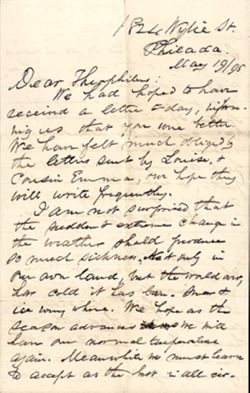 Wylie St.
Philada.
May 19/98
Dear Theophilus:
We had hoped to have
received a letter to day, inform-
ing us that you were better.
We have felt much obliged to
the letters sent by Louise, &
Cousin Emma, & hope they
will write frequently.
I am not surprised that
the sudden & extreme change in
the weather should produce
so much sickness. Not only in
our own land, but the world over,
cold it has been.
ice every where. We hope as the
season advances we will
have our normal temperature
again. Meanwhile we must learn
to accept as the best in all cir-